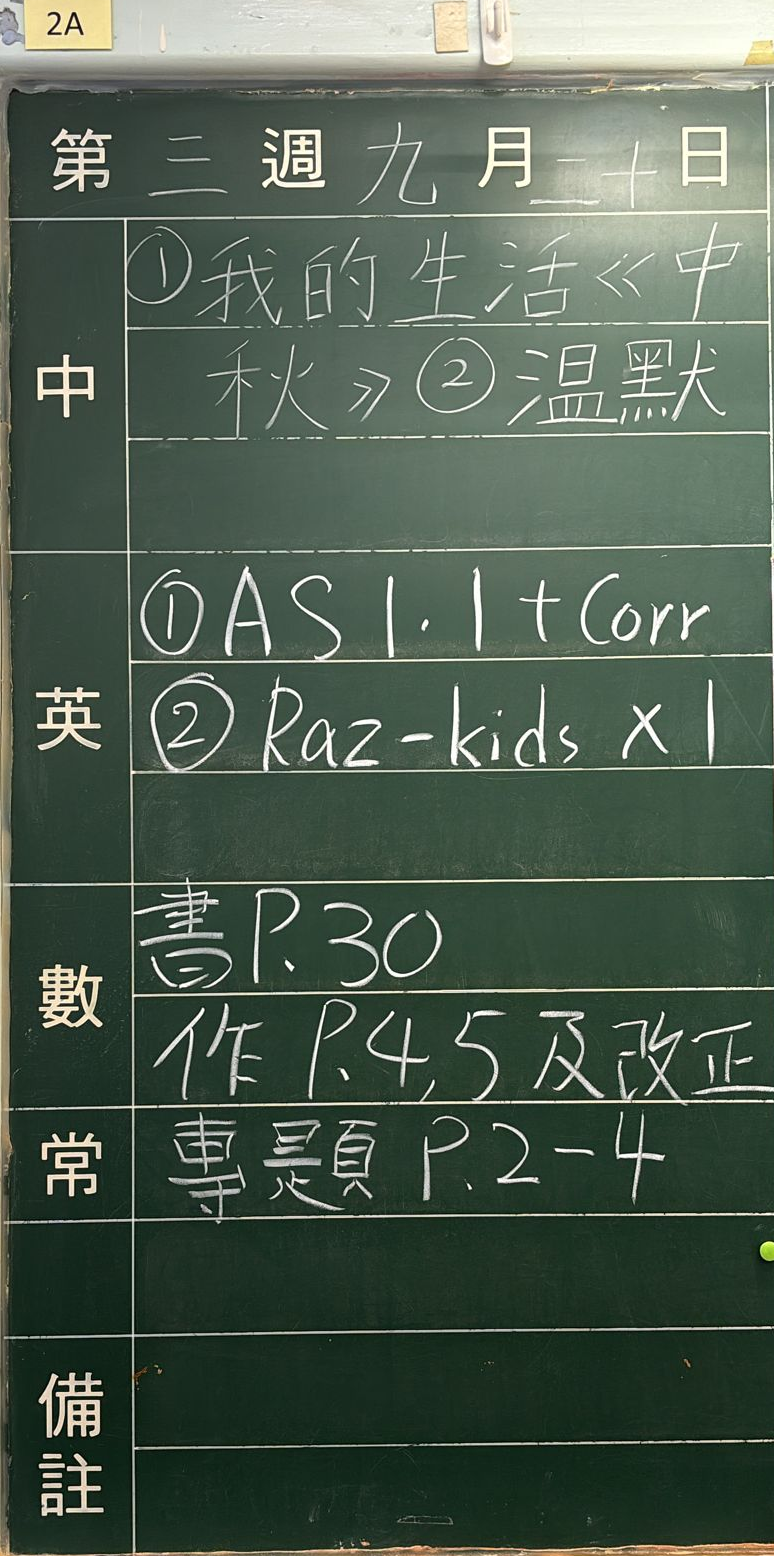 2A
第三週九月二十日
中
①我的生活《中
秋》②温默
英
①AS1.1+Corr
②Raz-kids x1
數
書P.30
作P.4,5及改正
常
專題P.2-4
備註